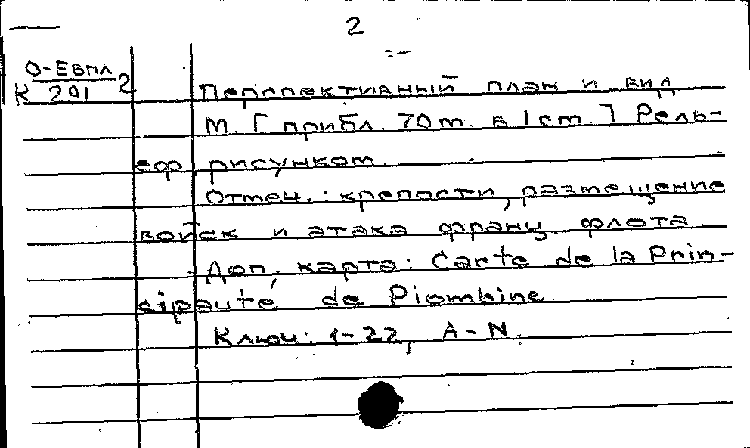 2
О-Евпл
К 291 2
Перспективный план и вид
М. [прибл. 70 m. в 1 cm.] Рель-
еф рисунком.
Отмеч.: крепости, размещение
войск и атака франц. флота
Доп. карта: Carte de la Prin-
cipauté de Piombine
Ключ: 1-22, A-N.